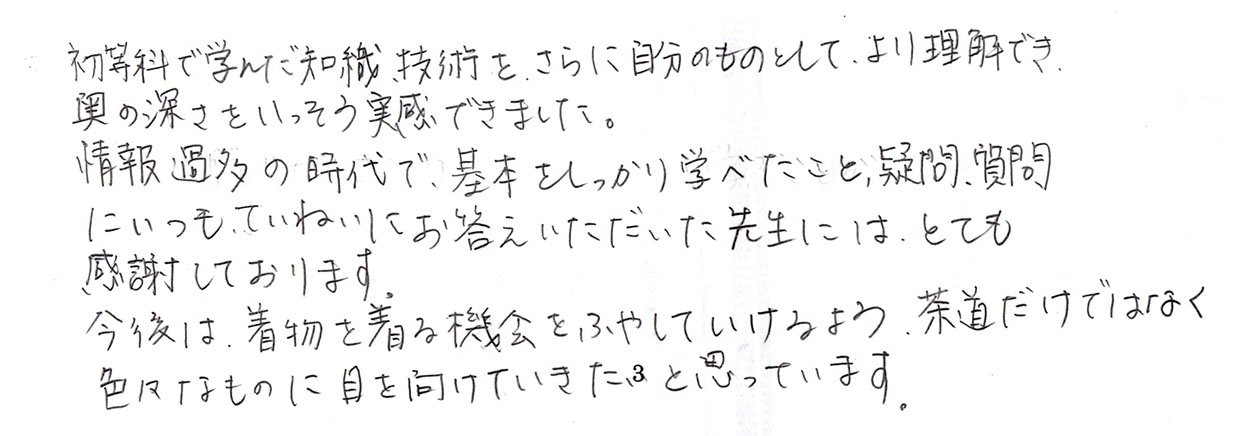 初等科で学んだ知織、技術を、さらに自分のものとして、より理解でき、
奥の深さをいっそう実感できました。
情報過多の時代で、基本をしっかり学べたこと、疑問、質問
にいつも、ていねいにお答えいただいた先生には、とても
感謝しております。
今後は、着物を着る機会をふやしていけるよう、茶道だけではなく
色々なものに目を向けていきた と思っています。